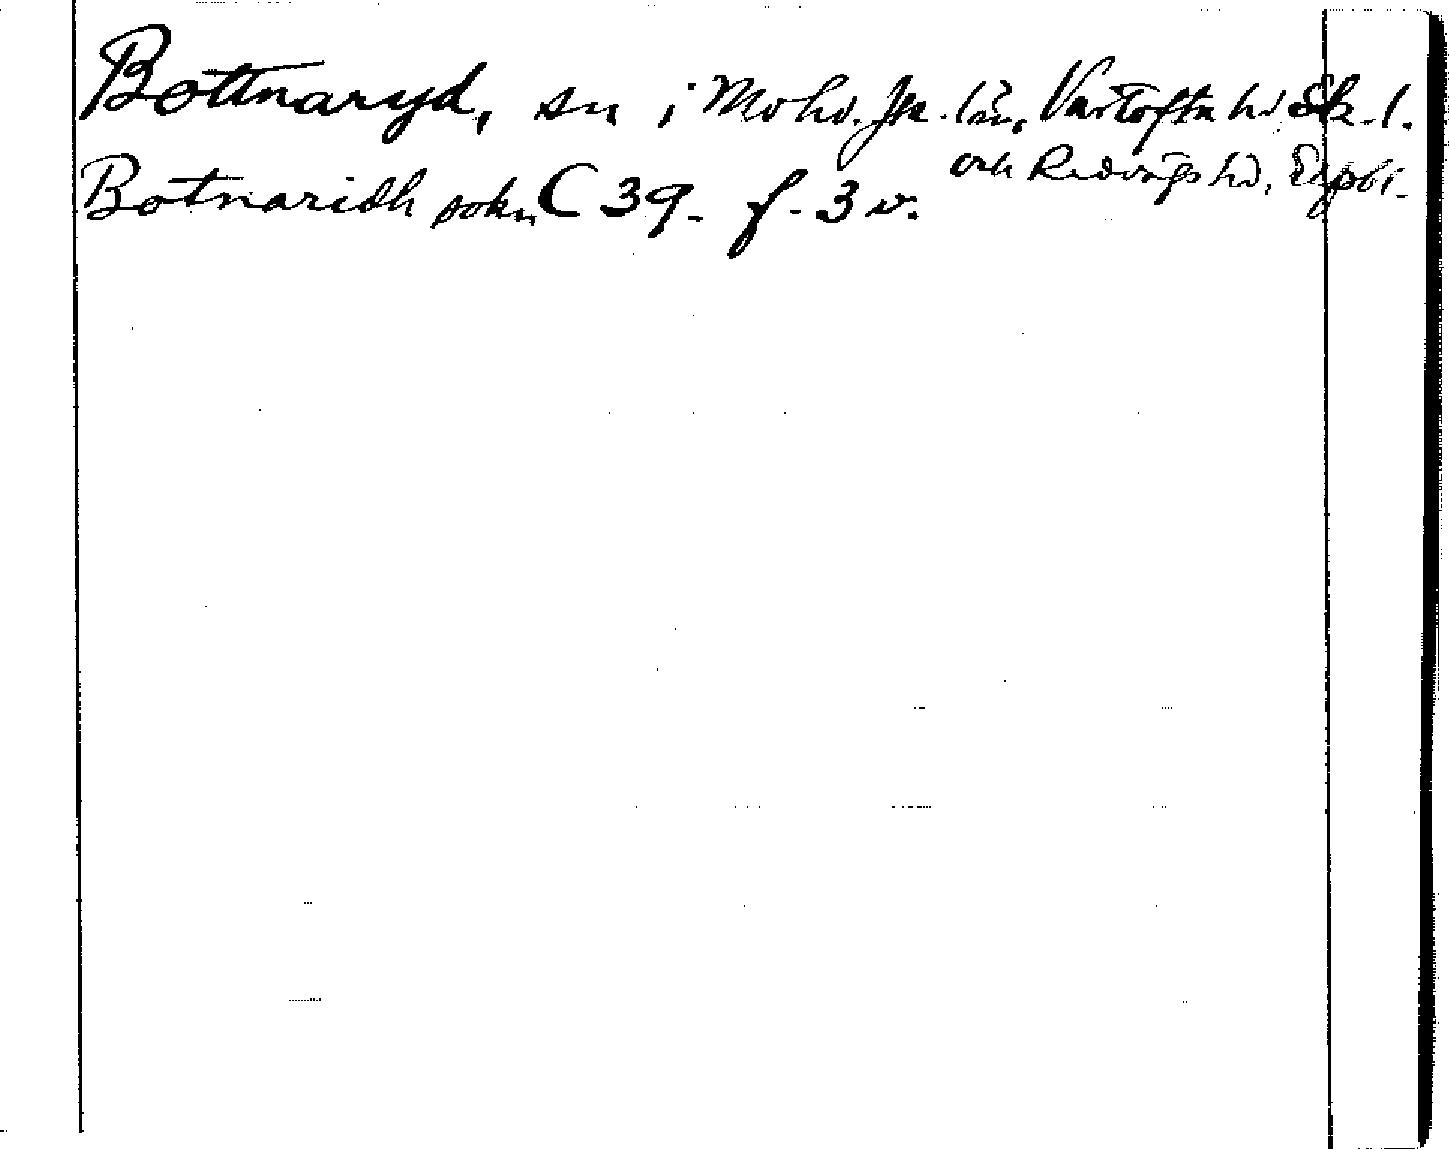 Bottnaryd, sn i Mo hd. Jk. län, Vartofta hd Sk. l.
och Redvägs hd, Ä
Botnaridh sokn C 39. f. 3 v.